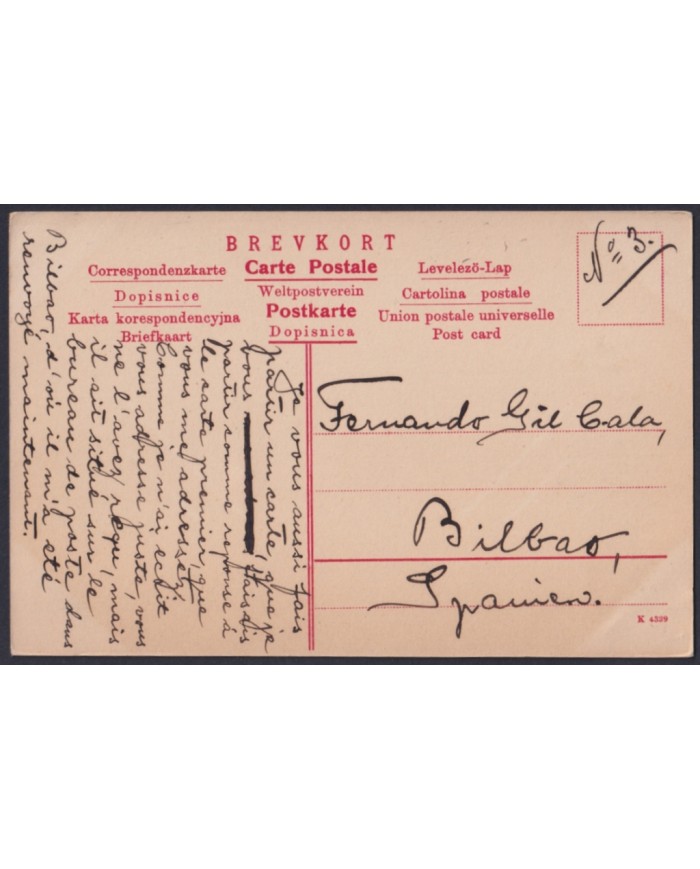 BREVKORT
Correspondenzkarte
Carte Postale
Levelezö-Lap
Dopisnice
Weltpostverein
Cartolina postale
Karta korespondencyjna
Postkarte
Union postale universelle
Briefkaart
Dopisnica
Post card
Nº 3.
Fernando Gil Cala,
Bilbao,
Spanien.
K 4339
Je vous aussi fais
partir un carte, que je
vous
partir comme reponse à
le carte premier, que
vous me adressez.
Comme je n'ai ecrit
vous adresse juste, vous
ne l'avez reçu, mais
il sit situé sur le
bureau de poste dans
Bilbao, d'où il m'a eté
renvoyé maintenant.